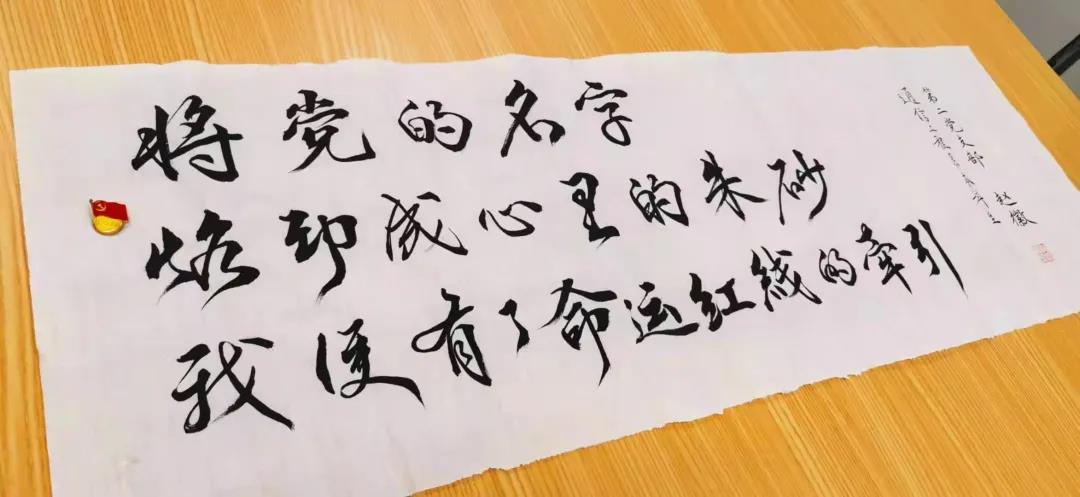 将党的名字
烙印成心里的朱砂
我便有了命运红线的牵引
第二党支部 赵徽
通信工程